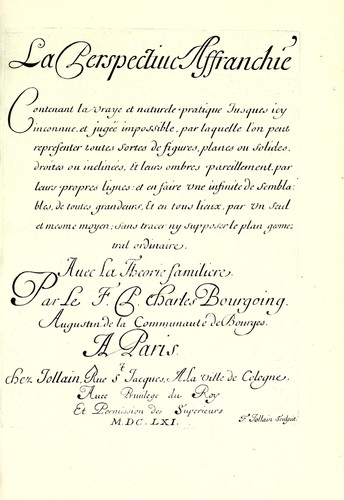 La Perspectiue Affranchie
Contenant la vraye et naturele pratique Jusques icy
inconnue, et jugée impossible, par laquelle l'on peut
representer toutes sortes de figures, planes ou solides,
droites ou inclinées, Et leurs ombres pareillement, par
leurs propres lignes: et en faire vne infinité de sembla:
bles, de toutes grandeurs, Et en tous lieux, par vn seul
et mesme moyen; sans tracer ny supposer le plan geome:
tral ordinaire.
Auec La Theorie familiere.
Par Le F. P. Charles Bourgoing.
Augustin de la Communauté de Bourges.
A Paris.
chez Jollain, Rue St Jacques, A la Ville de Cologne.
Auec Priuilege du Roy
Et Permission des Superieurs
M.DC.LXI.
F. Jollain Sculpsit